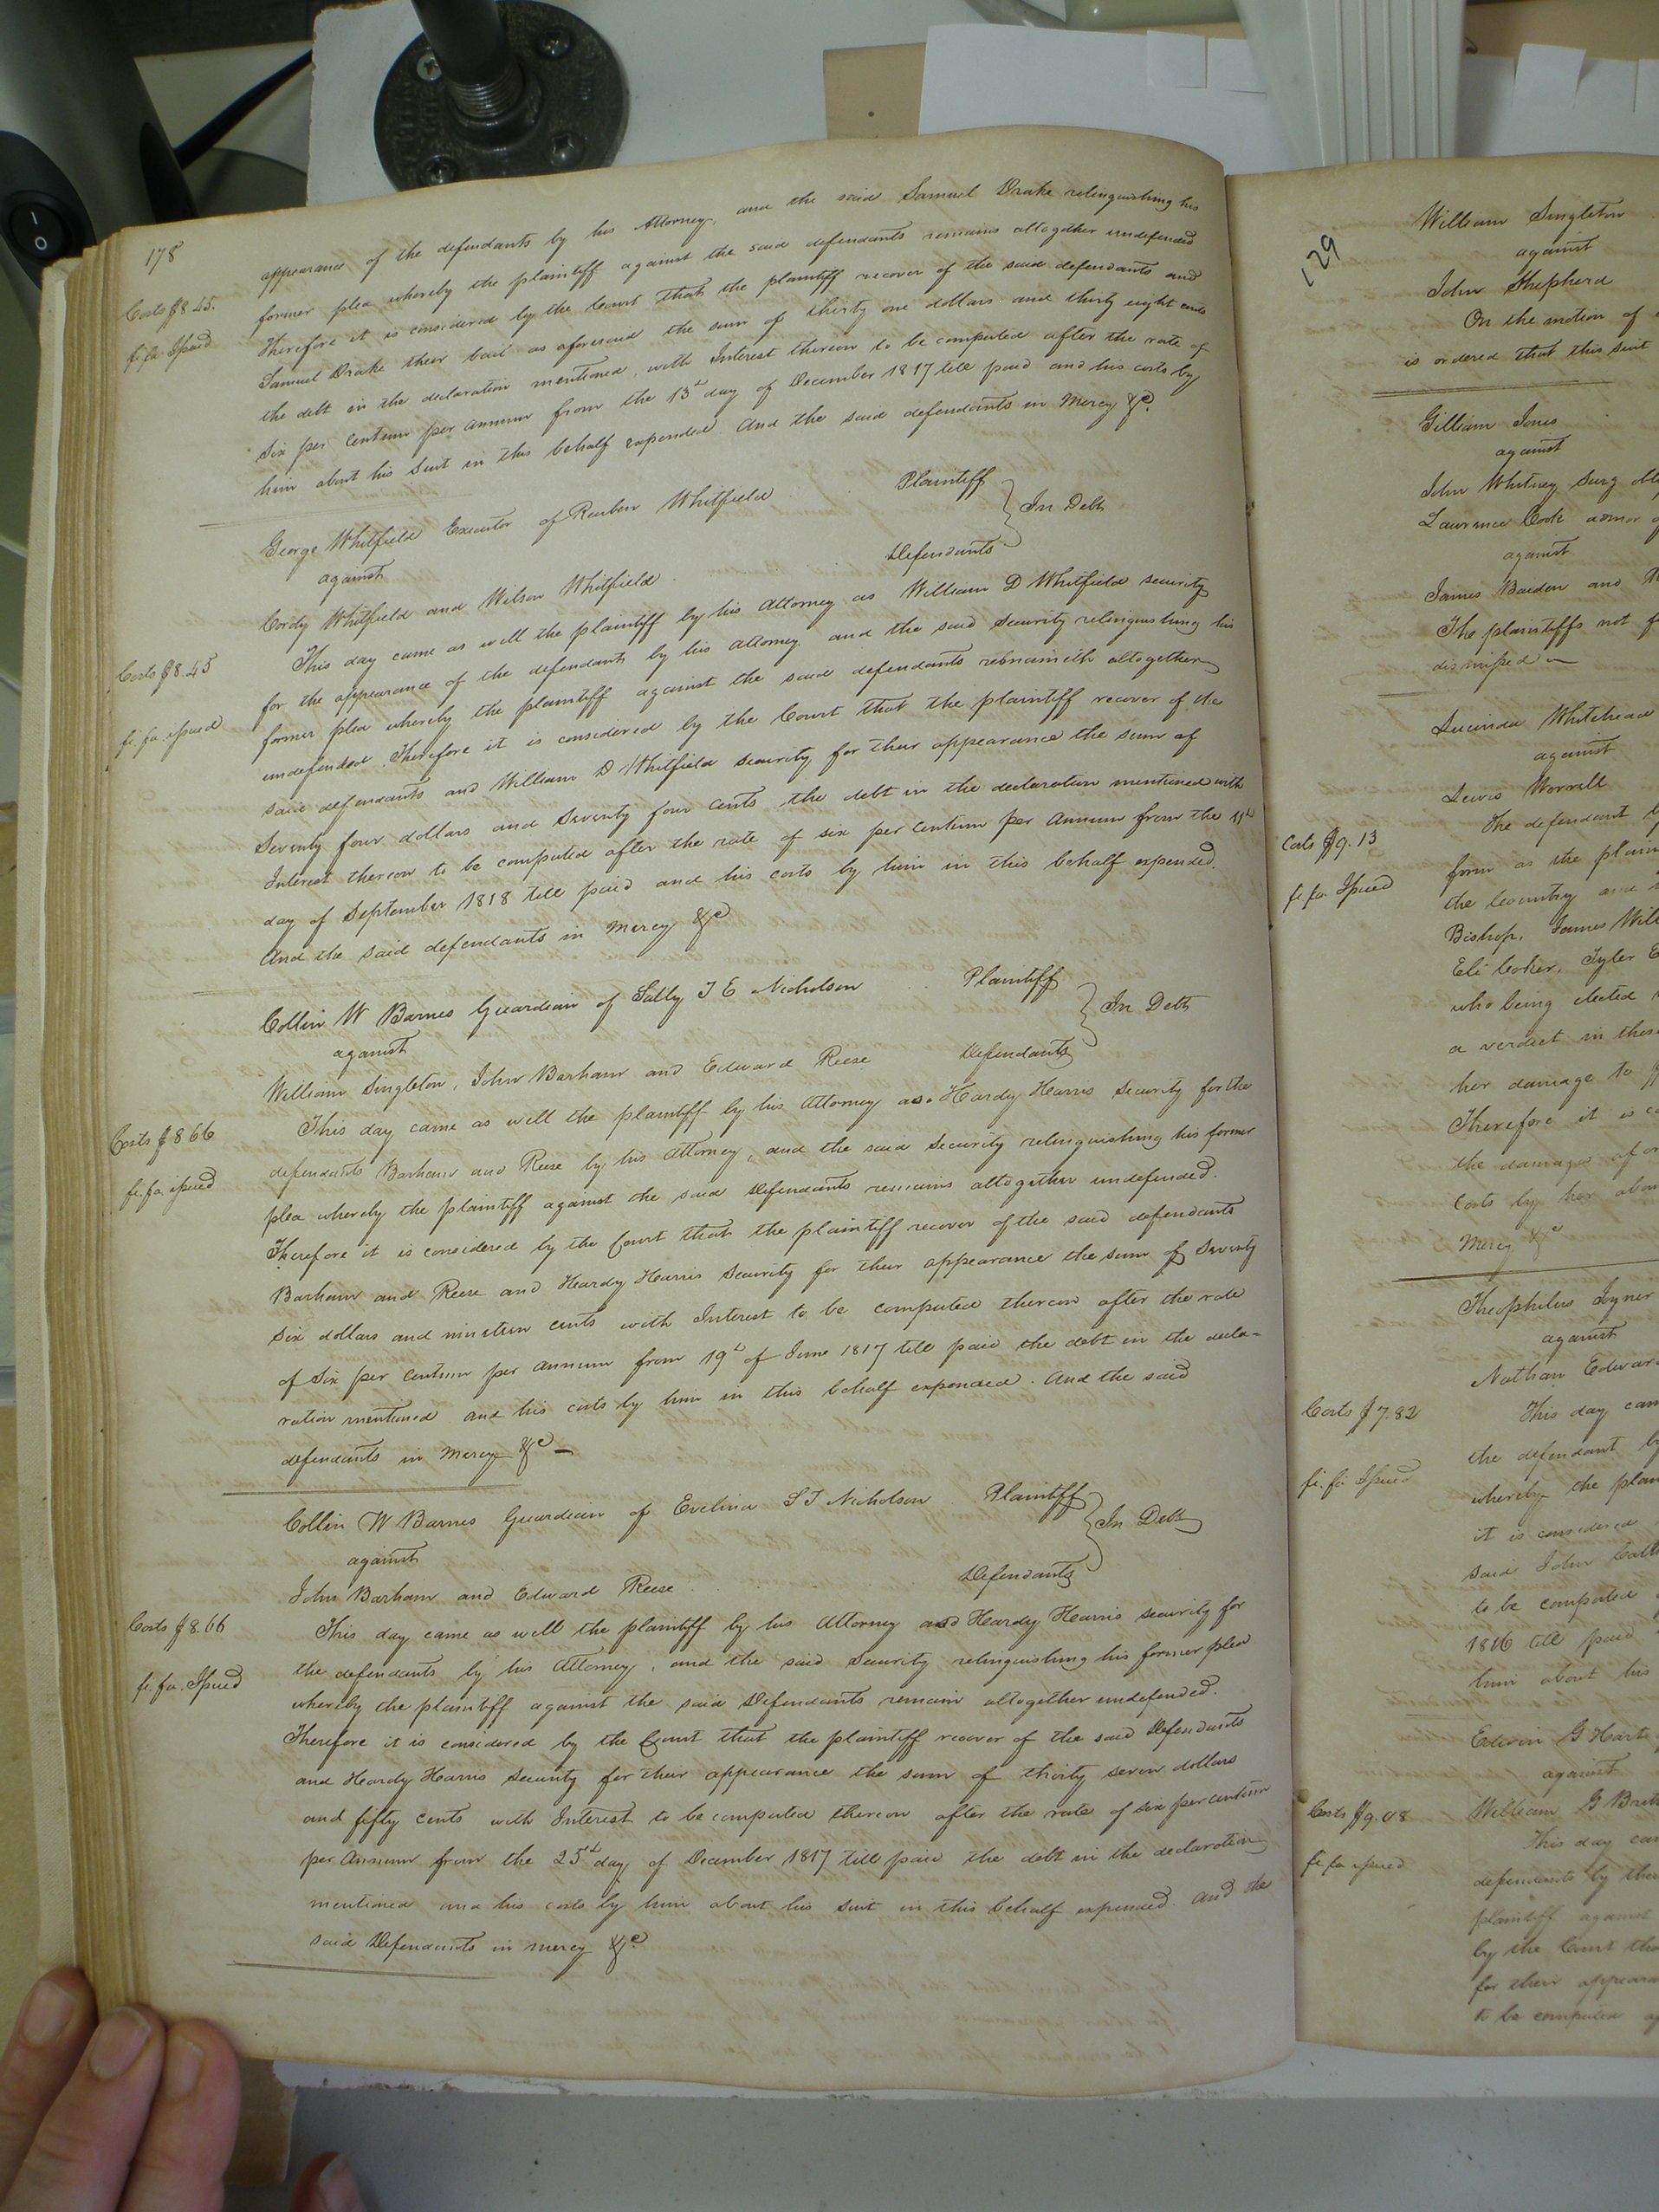 178
appearance of the defendants by his Attorney, and the said Samuel Drake relinquishing his
former plea whereby the plaintiff against the said defendants remains altogether undefended
Costs $8.45.
Therefore it is considered by the Court that the plaintiff recover of the said defendants and
fi. fa. Issued
Samuel Drake their bail as aforesaid the sum of thirty one dollars and thirty eight cents
the debt in the declaration mentioned, with Interest thereon to be computed after the rate of
six per Centum per annum from the 13th day of December 1817 till paid and his costs by
him about his Suit in this behalf expended And the said defendants in Mercy &c.
George Whitfield Executor of Reuben Whitfield Plaintiff
against
In Debt
Cordy Whitfield and Wilson Whitfield Defendants
This day came as well the plaintiff by his Attorney as William D Whitfield security
Costs $8.45
for the appearance of the defendants by his attorney and the said security relinquishing his
former plea whereby the plaintiff against the said defendants remaineth altogether
fi. fa. issued
undefended. Therefore it is considered by the Court that the plaintiff recover of the
said defendants and William D Whitfield security for their appearance the sum of
Seventy four dollars and Seventy four Cents the debt in the declaration mentioned with
Interest thereon to be computed after the rate of six per Centum per Annum from the 11th
day of September 1818 till paid and his costs by him in this behalf expended.
And the said defendants in Mercy &c
Collin W Barnes Guardian of Sally T E Nicholson Plaintiff
against
In Debt
William Singleton, John Barham and Edward Reese Defendants
This day came as well the plaintiff by his Attorney as Hardy Harris Security for the
Costs $8.66
defendants Barham and Reese by his Attorney, and the said Security relinquishing his former
fi. fa. issued
plea whereby the plaintiff against the said Defendants remains altogether undefended.
Therefore it is considered by the Court that the plaintiff recover of the said defendants
Barham and Reese and Hardy Harris Security for their appearance the sum of Seventy
Six dollars and nineteen cents with Interest to be computed thereon after the rate
of Six per Centum per annum from 19th of June 1817 till paid the debt in the decla-
ration mentioned and his costs by him in this behalf expended. And the said
defendants in Mercy &c -
Collin W Barnes Guardian of Evelina S T Nicholson Plaintiff
against
In Debt
John Barham and Edward Reese Defendants
Costs $8.66
This day came as well the plaintiff by his Attorney and Hardy Harris security for
the defendants by his Attorney, and the said Security relinquishing his former plea
fi. fa. Issued
whereby the plaintiff against the said Defendants remain altogether undefended.
Therefore it is considered by the Court that the plaintiff recover of the said Defendants
and Hardy Harris Security for their appearance the sum of thirty seven dollars
and fifty cents with Interest to be computed thereon after the rate of six per centum
per Annum from the 25th day of December 1817 till paid the debt in the declaration
mentioned and his costs by him about his Suit in this behalf expended. And the
said Defendants in mercy &c.
129
William Singleton
against
John Shepherd
On the motion of
is ordered that this suit
Gilliam Jones
against
John Whitney Surg
Lawrence Cook admor
against
James Barden and
The plaintiffs not
dismissed
Lucinda Whitehead
against
Lewis Worrell
The defendant
Costs $9.13
form as the plain
fi. fa. Issued
the Country and
Bishop, James Will
Eli Coker, Tyler E
who being elected
a verdict in these
her damage to
Therefore it is co
the damages afor
Costs by her abou
Mercy &c
Theophilus Joyner
against
Nathan Edward
Costs $7.82
This day cam
the defendant by
fi. fa. Issued
whereby the plain
it is considered
said John
to be computed
1816 till paid
him about his
Edwin G Hart
against
Costs $9.08
William G Britt
This day ca
fi. fa. issued
defendants by thei
plaintiff against
by the Court tha
for their appeara
to be computed